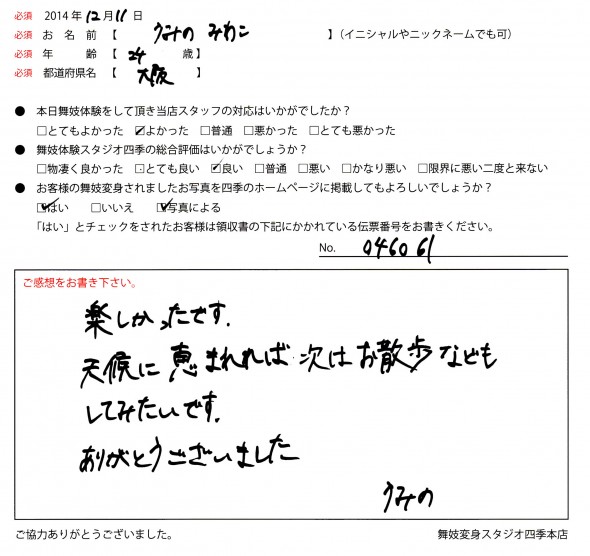 必須 2014年12月11日
必須 お名前【 うみの みわこ 】(イニシャルやニックネームでも可)
必須 年齢【 24 歳】
必須 都道府県名【 大阪 】
● 本日舞妓体験をして頂き当店スタッフの対応はいかがでしたか?
□とてもよかった ☑よかった □普通 □悪かった □とても悪かった
● 舞妓体験スタジオ四季の総合評価はいかがでしょうか?
□物凄く良かった □とても良い ☑良い □普通 □悪い □かなり悪い □限界に悪い二度と来ない
● お客様の舞妓変身されましたお写真を四季のホームページに掲載してもよろしいでしょうか?
☑はい □いいえ ☑写真による
「はい」とチェックをされたお客様は領収書の下記にかかれている伝票番号をお書きください。
No. 046061
ご感想をお書き下さい。
楽しかったです.
天候に恵まれれば次はお散歩なども
してみたいです.
ありがとうございました
うみの
ご協力ありがとうございました。 舞妓変身スタジオ四季本店